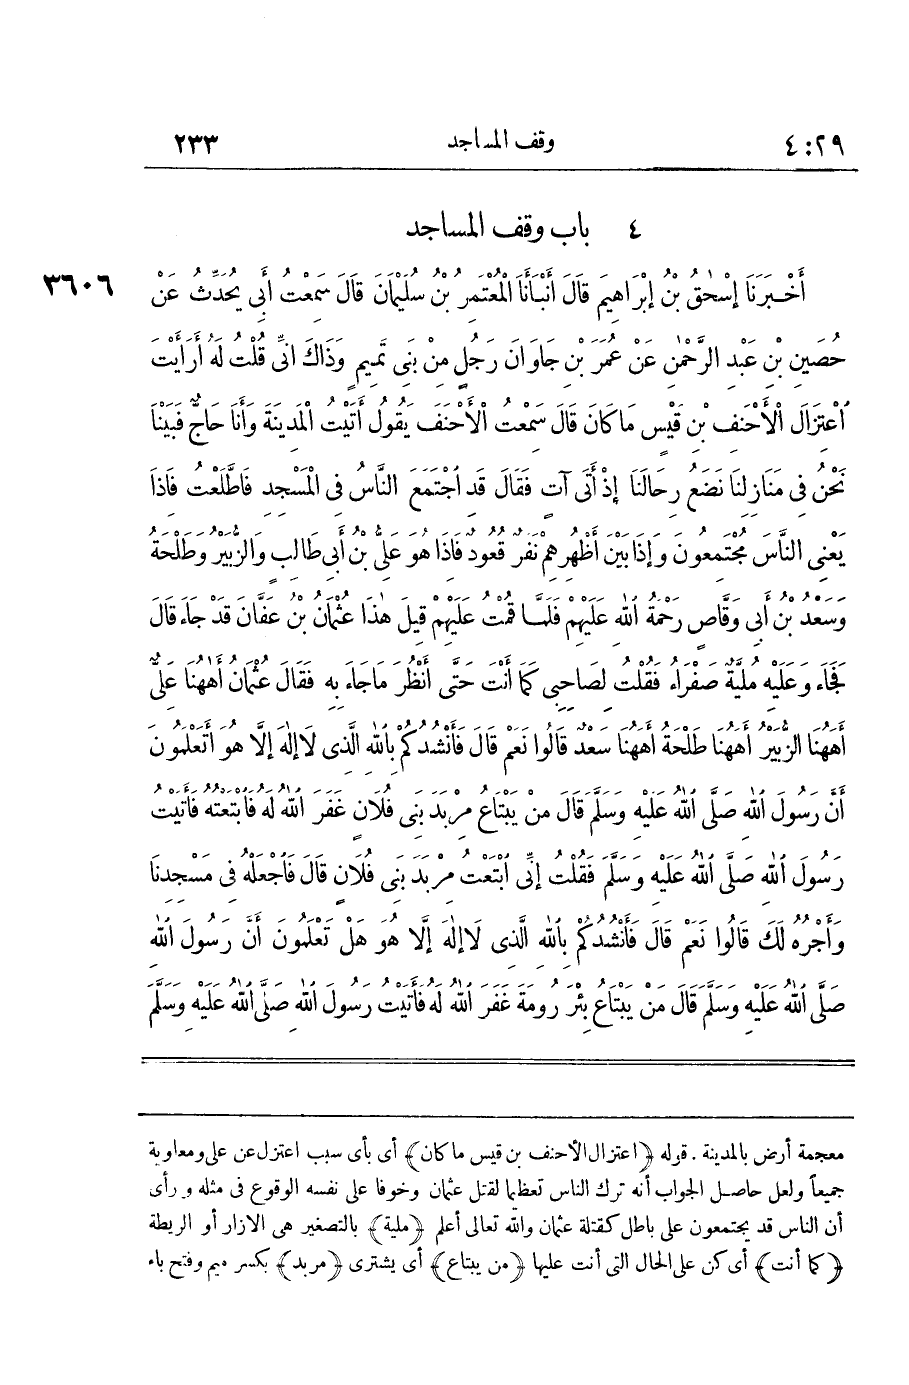 ٤:٢٩ وقف المساجد ٢٣٣
٤ باب وقف المساجد
٣٦٠٦ أَخْبَرَنَا إِسْحٰقُ بْنُ إِبْرَاهِيمَ قَالَ أَنْبَأَنَا الْمُعْتَمِرُ بْنُ سُلَيْمَانَ قَالَ سَمِعْتُ أَبِي يُحَدِّثُ عَنْ
حُصَيْنِ بْنِ عَبْدِ الرَّحْمٰنِ عَنْ عُمَرَ بْنِ جَاوَانَ رَجُلٍ مِنْ بَنِي تَمِيمٍ وَذَاكَ انِّي قُلْتُ لَهُ أَرَأَيْتَ
اُعْتِزَالَ الْأَحْنَفِ بْنِ قَيْسٍ مَا كَانَ قَالَ سَمِعْتُ الْأَحْنَفَ يَقُولُ أَتَيْتُ الْمَدِينَةَ وَأَنَا حَاجٌّ فَبَيْنَا
نَحْنُ فِي مَنَازِلِنَا نَضَعُ رِحَالَنَا إِذْ أَتَى آتٍ فَقَالَ قَدِ اُجْتَمَعَ النَّاسُ فِي الْمَسْجِدِ فَاطَّلَعْتُ فَاذَا
يَعْنِي النَّاسَ مُجْتَمِعُونَ وَإِذَا بَيْنَ أَظْهُرِهِمْ نَفَرٌ قُعُودٌ فَاذَا هُوَ عَلِيُّ بْنُ أَبِي طَالِبٍ وَالزُّبَيْرُ وَطَلْحَةُ
وَسَعْدُ بْنُ أَبِي وَقَّاصٍ رَحْمَةُ اللّٰهِ عَلَيْهِمْ فَلَمَّا قُمْتُ عَلَيْهِمْ قِيلَ هٰذَا عُثْمَانُ بْنُ عَفَّانَ قَدْ جَاءَ قَالَ
فَجَاءَ وَعَلَيْهِ مُلَيَّةٌ صَفْرَاءُ فَقُلْتُ لِصَاحِبِي كَمَا أَنْتَ حَتَّى أَنْظُرَ مَا جَاءَ بِهِ فَقَالَ عُثْمَانُ أَهٰهُنَا عَلِيٌّ
أَهٰهُنَا الزُّبَيْرُ أَهٰهُنَا طَلْحَةُ أَهٰهُنَا سَعْدٌ قَالُوا نَعَمْ قَالَ فَأَنْشُدُكُمْ بِاللّٰهِ الَّذِي لَا إِلٰهَ إِلَّا هُوَ أَتَعْلَمُونَ
أَنَّ رَسُولَ اللّٰهِ صَلَّى اللّٰهُ عَلَيْهِ وَسَلَّمَ قَالَ مَنْ يَبْتَاعُ مِرْبَدَ بَنِي فُلَانٍ غَفَرَ اللّٰهُ لَهُ فَابْتَعْتُهُ فَأَتَيْتُ
رَسُولَ اللّٰهِ صَلَّى اللّٰهُ عَلَيْهِ وَسَلَّمَ فَقُلْتُ إِنِّي اُبْتَعْتُ مِرْبَدَ بَنِي فُلَانٍ قَالَ فَاُجْعَلْهُ فِي مَسْجِدِنَا
وَأَجْرُهُ لَكَ قَالُوا نَعَمْ قَالَ فَأَنْشُدُكُمْ بِاللّٰهِ الَّذِي لَا إِلٰهَ إِلَّا هُوَ هَلْ تَعْلَمُونَ أَنَّ رَسُولَ اللّٰهِ
صَلَّى اللّٰهُ عَلَيْهِ وَسَلَّمَ قَالَ مَنْ يَبْتَاعُ بِئْرَ رُومَةَ غَفَرَ اللّٰهُ لَهُ فَأَتَيْتُ رَسُولَ اللّٰهِ صَلَّى اللّٰهُ عَلَيْهِ وَسَلَّمَ
معجمة أرض بالمدينة . قوله ﴿اعتزال الأحنف بن قيس ما كان﴾ أى بأى سبب اعتزل عن على ومعاوية
جميعاً ولعل حاصل الجواب أنه ترك الناس تعظيما لقتل عثمان وخوفا على نفسه الوقوع فى مثله ورأى
أن الناس قد يجتمعون على باطل كقتلة عثمان والله تعالى أعلم ﴿ملية﴾ بالتصغير هى الازار أو الريطة
﴿كما أنت﴾ أى كن على الحال التى أنت عليها ﴿من يبتاع﴾ أى يشترى ﴿مربد﴾ بكسر ميم وفتح باء